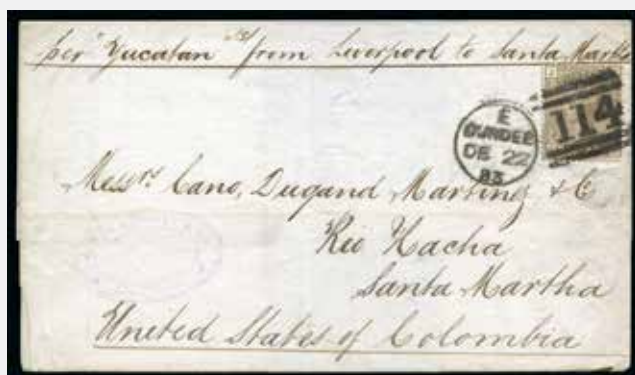 per "Yucatan" from Liverpool to Santa Martha
E
DUNDEE
DE 22
83
114
Messrs Cano, Dugand Martinez & Co
Rio Hacha
Santa Martha
United States of Colombia